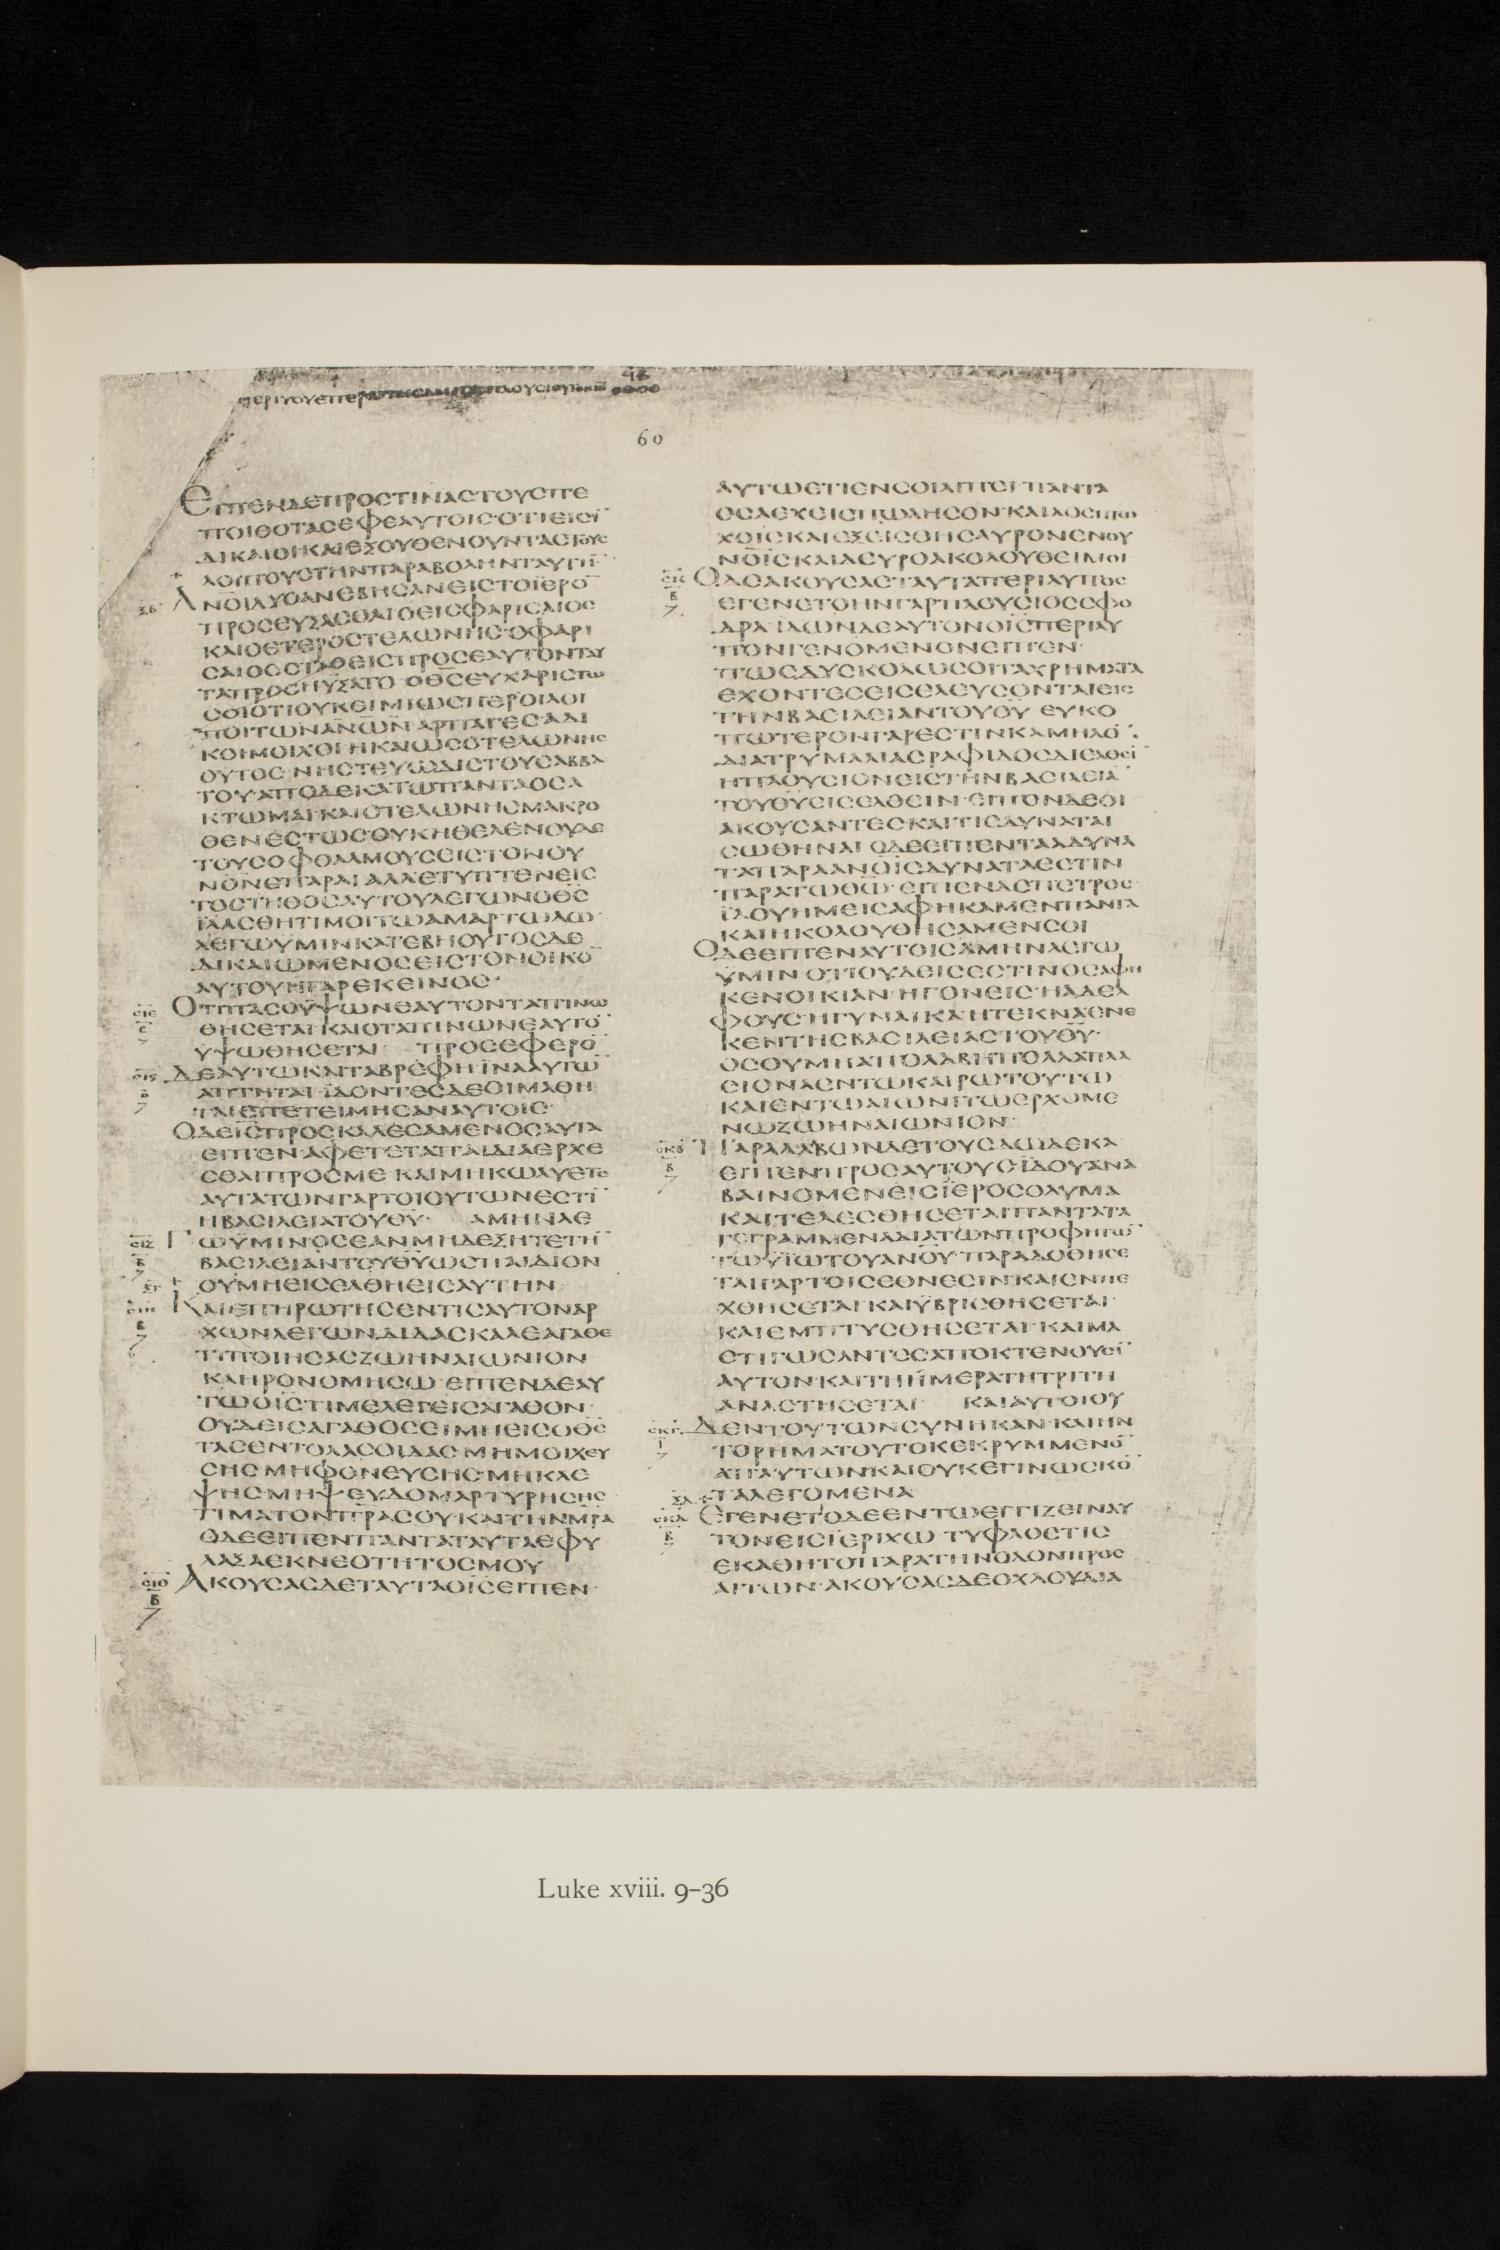 60
ΕΙΠΕΝΔΕΠΡΟΣΤΙΝΑΣΤΟΥΣΠΕ
ΠΟΙΘΟΤΑΣΕΦΕΑΥΤΟΙΣ·ΟΤΙΕΙΣΙ̅
ΔΙΚΑΙΟΙ·ΚΑΙΕΞΟΥΘΕΝΟΥΝΤΑΣΤΟΥΣ
ΛΟΙΠΟΥΣΤΗΝΠΑΡΑΒΟΛΗΝΤΑΥΤΗ̅
ΑΝΟΙΔΥΟΑΝΕΒΗΣΑΝΕΙΣΤΟΪΕΡΟ̅
ΠΡΟΣΕΥΞΑΣΘΑΙ·ΟΕΙΣΦΑΡΙΣΑΙΟΣ
ΚΑΙΟΕΤΕΡΟΣΤΕΛΩΝΗΣ·ΟΦΑΡΙ
ΣΑΙΟΣΣΤΑΘΕΙΣΠΡΟΣΕΑΥΤΟΝΤΑΥ
ΤΑΠΡΟΣΗΥΞΑΤΟ ΟΘ̅Σ̅ΕΥΧΑΡΙΣΤΩ
ΣΟΙΟΤΙΟΥΚΕΙΜΙΩΣΠΕΡΟΙΛΟΙ
ΠΟΙΤΩΝΑΝ̅Ω̅Ν̅·ΑΡΠΑΓΕΣ·ΑΔΙ
ΚΟΙ·ΜΟΙΧΟΙ·ΗΚΑΙΩΣΟΤΕΛΩΝΗΣ
ΟΥΤΟΣ·ΝΗΣΤΕΥΩΔΙΣΤΟΥΣΑΒΒΑ
ΤΟΥ·ΑΠΟΔΕΚΑΤΩΠΑΝΤΑΟΣΑ
ΚΤΩΜΑΙ·ΚΑΙΟΤΕΛΩΝΗΣΜΑΚΡΟ
ΘΕΝΕΣΤΩΣΟΥΚΗΘΕΛΕΝΟΥΔΕ
ΤΟΥΣΟΦΘΑΛΜΟΥΣΕΙΣΤΟΝΟΥ
ΝΟΝΕΠΑΡΑΙ ΑΛΛΕΤΥΠΤΕΝΕΙΣ
ΤΟΣΤΗΘΟΣΑΥΤΟΥΛΕΓΩΝΟΘ̅Σ̅
ΪΛΑΣΘΗΤΙΜΟΙΤΩΑΜΑΡΤΩΛΩ·
ΛΕΓΩΫΜΙΝΚΑΤΕΒΗΟΥΤΟΣΔΕ
ΔΙΚΑΙΩΜΕΝΟΣΕΙΣΤΟΝΟΙΚΟ̅
ΑΥΤΟΥΗΓΑΡΕΚΕΙΝΟΣ·
ΟΤΙΠΑΣΟΫΨΩΝΕΑΥΤΟΝΤΑΠΙΝΩ
ΘΗΣΕΤΑΙ·ΚΑΙΟΤΑΠΙΝΩΝΕΑΥΤΟ̅
ΥΨΩΘΗΣΕΤΑΙ ΠΡΟΣΕΦΕΡΟ̅
ΔΕΑΥΤΩΚΑΙΤΑΒΡΕΦΗ·ΪΝΑΑΥΤΩ̅
ΑΠΤΗΤΑΙ·ΪΔΟΝΤΕΣΔΕΟΙΜΑΘΗ
ΤΑΙΕΠΕΤΕΙΜΗΣΑΝΑΥΤΟΙΣ·
ΟΔΕΙ̅Σ̅ΠΡΟΣΚΑΛΕΣΑΜΕΝΟΣΑΥΤΑ
ΕΙΠΕΝ·ΑΦΕΤΕΤΑΠΑΙΔΙΑΕΡΧΕ
ΣΘΑΙΠΡΟΣΜΕ·ΚΑΙΜΗΚΩΛΥΕΤΕ
ΑΥΤΑΤΩΝΓΑΡΤΟΙΟΥΤΩΝΕΣΤΙ̅
ΗΒΑΣΙΛΕΙΑΤΟΥΘ̅Υ̅· ΑΜΗΝΛΕ
ΓΩΫΜΙΝΟΣΕΑΝΜΗΔΕΞΗΤΕΤΗ̅
ΒΑΣΙΛΕΙΑΝΤΟΥΘ̅Υ̅ΩΣΠΑΙΔΙΟΝ
ΟΥΜΗΕΙΣΕΛΘΗΕΙΣΑΥΤΗΝ
ΚΑΙΕΠΗΡΩΤΗΣΕΝΤΙΣΑΥΤΟΝΑΡ
ΧΩΝΛΕΓΩΝ·ΔΙΔΑΣΚΑΛΕΑΓΑΘΕ
ΤΙΠΟΙΗΣΑΣΖΩΗΝΑΙΩΝΙΟΝ
ΚΛΗΡΟΝΟΜΗΣΩ·ΕΙΠΕΝΔΕΑΥ
ΤΩΟΙ̅Σ̅ΤΙΜΕΛΕΓΕΙΣΑΓΑΘΟΝ·
ΟΥΔΕΙΣΑΓΑΘΟΣΕΙΜΗΕΙΣΟΘ̅Σ̅
ΤΑΣΕΝΤΟΛΑΣΟΙΔΑΣ·ΜΗΜΟΙΧΕΥ
ΣΗΣ·ΜΗΦΟΝΕΥΣΗΣ·ΜΗΚΛΕ
ΨΗΣ·ΜΗΨΕΥΔΟΜΑΡΤΥΡΗΣΗΣ
ΤΙΜΑΤΟΝΠ̅Ρ̅Α̅ΣΟΥ·ΚΑΙΤΗΝΜ̅Ρ̅Α̅
ΟΔΕΕΙΠΕΝΠΑΝΤΑΤΑΥΤΑΕΦΥ
ΛΑΞΑΕΚΝΕΟΤΗΤΟΣΜΟΥ
ΑΚΟΥΣΑΣΔΕΤΑΥΤΑΟΙ̅Σ̅ΕΙΠΕΝ·
ΑΥΤΩΕΤΙΕΝΣΟΙΛΙΠΕΙ·ΠΑΝΤΑ
ΟΣΑΕΧΕΙΣΠΩΛΗΣΟΝ·ΚΑΙΔΟΣΠΤΩ
ΧΟΙΣ·ΚΑΙΕΞΕΙΣΘΗΣΑΥΡΟΝΕΝΟΥ
ΝΟΙΣΚΑΙΔΕΥΡΟΑΚΟΛΟΥΘΕΙΜΟΙ
ΟΔΕΑΚΟΥΣΑΣΤΑΥΤΑΠΕΡΙΛΥΠΟΣ
ΕΓΕΝΕΤΟΗΝΓΑΡΠΛΟΥΣΙΟΣΣΦΟ
ΔΡΑ·ΙΔΩΝΔΕΑΥΤΟΝΟΙ̅Σ̅ΠΕΡΙΛΥ
ΠΟΝΓΕΝΟΜΕΝΟΝΕΙΠΕΝ·
ΠΩΣΔΥΣΚΟΛΩΣΟΙΤΑΧΡΗΜΑΤΑ
ΕΧΟΝΤΕΣΕΙΣΕΛΕΥΣΟΝΤΑΙΕΙΣ
ΤΗΝΒΑΣΙΛΕΙΑΝΤΟΥΘ̅Υ̅ ΕΥΚΟ
ΠΩΤΕΡΟΝΓΑΡΕΣΤΙΝΚΑΜΗΛΟ̅
ΔΙΑΤΡΥΜΑΛΙΑΣΡΑΦΙΔΟΣΔΙΕΛΘΕΙ̅
ΗΠΛΟΥΣΙΟΝΕΙΣΤΗΝΒΑΣΙΛΕΙΑ̅
ΤΟΥΘ̅Υ̅ΕΙΣΕΛΘΕΙΝ·ΕΙΠΟΝΔΕΟΙ
ΑΚΟΥΣΑΝΤΕΣΚΑΙΤΙΣΔΥΝΑΤΑΙ
ΣΩΘΗΝΑΙ ΟΔΕΕΙΠΕΝΤΑΑΔΥΝΑ
ΤΑΠΑΡΑΑΝ̅Ο̅Ι̅Σ̅ΔΥΝΑΤΑΕΣΤΙΝ
ΠΑΡΑΤΩΘ̅Ω̅·ΕΙΠΕΝΔΕΠΕΤΡΟΣ
ΪΔΟΥΗΜΕΙΣΑΦΗΚΑΜΕΝΠΑΝΤΑ
ΚΑΙΗΚΟΛΟΥΘΗΣΑΜΕΝΣΟΙ
ΟΔΕΕΙΠΕΝΑΥΤΟΙΣΑΜΗΝΛΕΓΩ
ΫΜΙΝΟΤΙΟΥΔΕΙΣΕΣΤΙΝΟΣΑΦΗ
ΚΕΝΟΙΚΙΑΝ·ΗΓΟΝΕΙΣ·ΗΑΔΕΛ
ΦΟΥΣ·ΗΓΥΝΑΙΚΑ·ΗΤΕΚΝΑΕΝΕ
ΚΕΝΤΗΣΒΑΣΙΛΕΙΑΣΤΟΥΘ̅Υ̅·
ΟΣΟΥΜΗΑΠΟΛΑΒΗΠΟΛΛΑΠΛΑ
ΣΙΟΝΑΕΝΤΩΚΑΙΡΩΤΟΥΤΩ
ΚΑΙΕΝΤΩΑΙΩΝΙΤΩΕΡΧΟΜΕ
ΝΩΖΩΗΝΑΙΩΝΙΟΝ·
ΠΑΡΑΛΑΒΩΝΔΕΤΟΥΣΔΩΔΕΚΑ
ΕΙΠΕΝΠΡΟΣΑΥΤΟΥΣ·ΪΔΟΥΑΝΑ
ΒΑΙΝΟΜΕΝΕΙΣΪΕΡΟΣΟΛΥΜΑ
ΚΑΙΤΕΛΕΣΘΗΣΕΤΑΙΠΑΝΤΑΤΑ
ΓΕΓΡΑΜΜΕΝΑΔΙΑΤΩΝΠΡΟΦΗΤΩ̅
ΤΩΥΪΩΤΟΥΑΝ̅Ο̅Υ̅·ΠΑΡΑΔΟΘΗΣΕ
ΤΑΙΓΑΡΤΟΙΣΕΘΝΕΣΙΝ·ΚΑΙΕΝΠΕ
ΧΘΗΣΕΤΑΙ·ΚΑΙΫΒΡΙΣΘΗΣΕΤΑΙ·
ΚΑΙΕΜΠΤΥΣΘΗΣΕΤΑΙ·ΚΑΙΜΑ
ΣΤΙΓΩΣΑΝΤΕΣΑΠΟΚΤΕΝΟΥΣΙ̅
ΑΥΤΟΝ·ΚΑΙΤΗΗΜΕΡΑΤΗΤΡΙΤΗ
ΑΝΑΣΤΗΣΕΤΑΙ ΚΑΙΑΥΤΟΙΟΥ
ΔΕΝΤΟΥΤΩΝΣΥΝΗΚΑΝ·ΚΑΙΗΝ
ΤΟΡΗΜΑΤΟΥΤΟΚΕΚΡΥΜΜΕΝΟ̅
ΑΠΑΥΤΩΝ·ΚΑΙΟΥΚΕΓΙΝΩΣΚΟ̅
ΤΑΛΕΓΟΜΕΝΑ
ΕΓΕΝΕΤΟΔΕΕΝΤΩΕΓΓΙΖΕΙΝΑΥ
ΤΟΝΕΙΣΪΕΡΙΧΩ·ΤΥΦΛΟΣΤΙΣ
ΕΚΑΘΗΤΟΠΑΡΑΤΗΝΟΔΟΝΠΡΟΣ
ΑΙΤΩΝ·ΑΚΟΥΣΑΣΔΕΟΧΛΟΥΔΙΑ
Luke xviii. 9–36